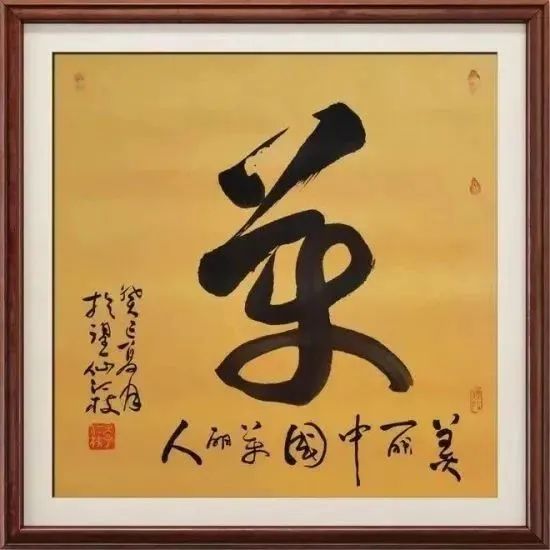 美
美丽中國美丽人
癸巳夏月
於仙